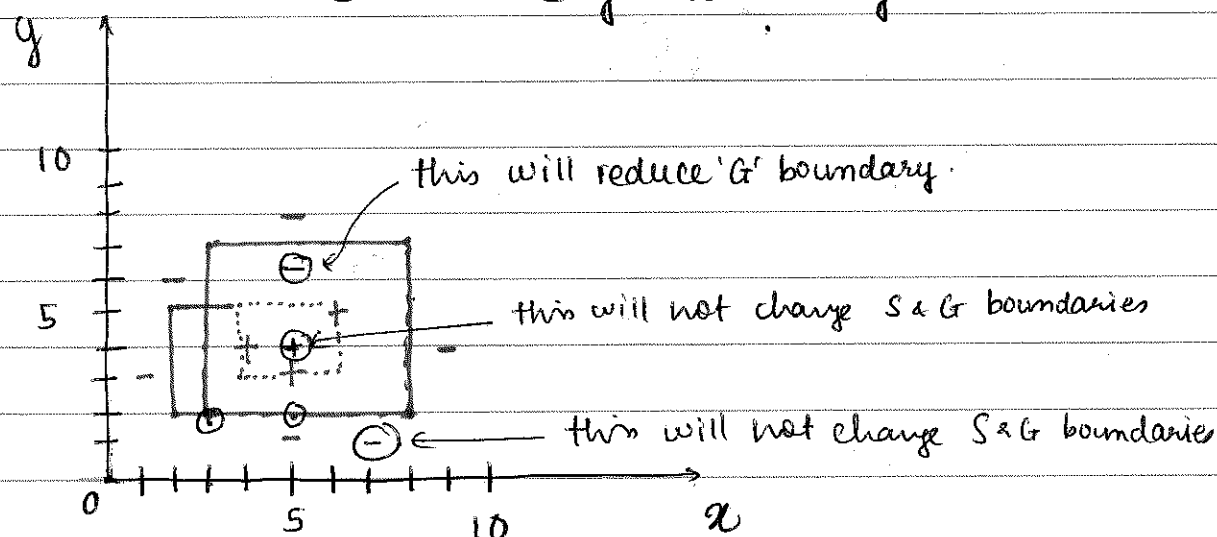 y
10
this will reduce 'G' boundary.
5
this will not change S & G boundaries
this will not change S & G boundaries
0
5
10
x